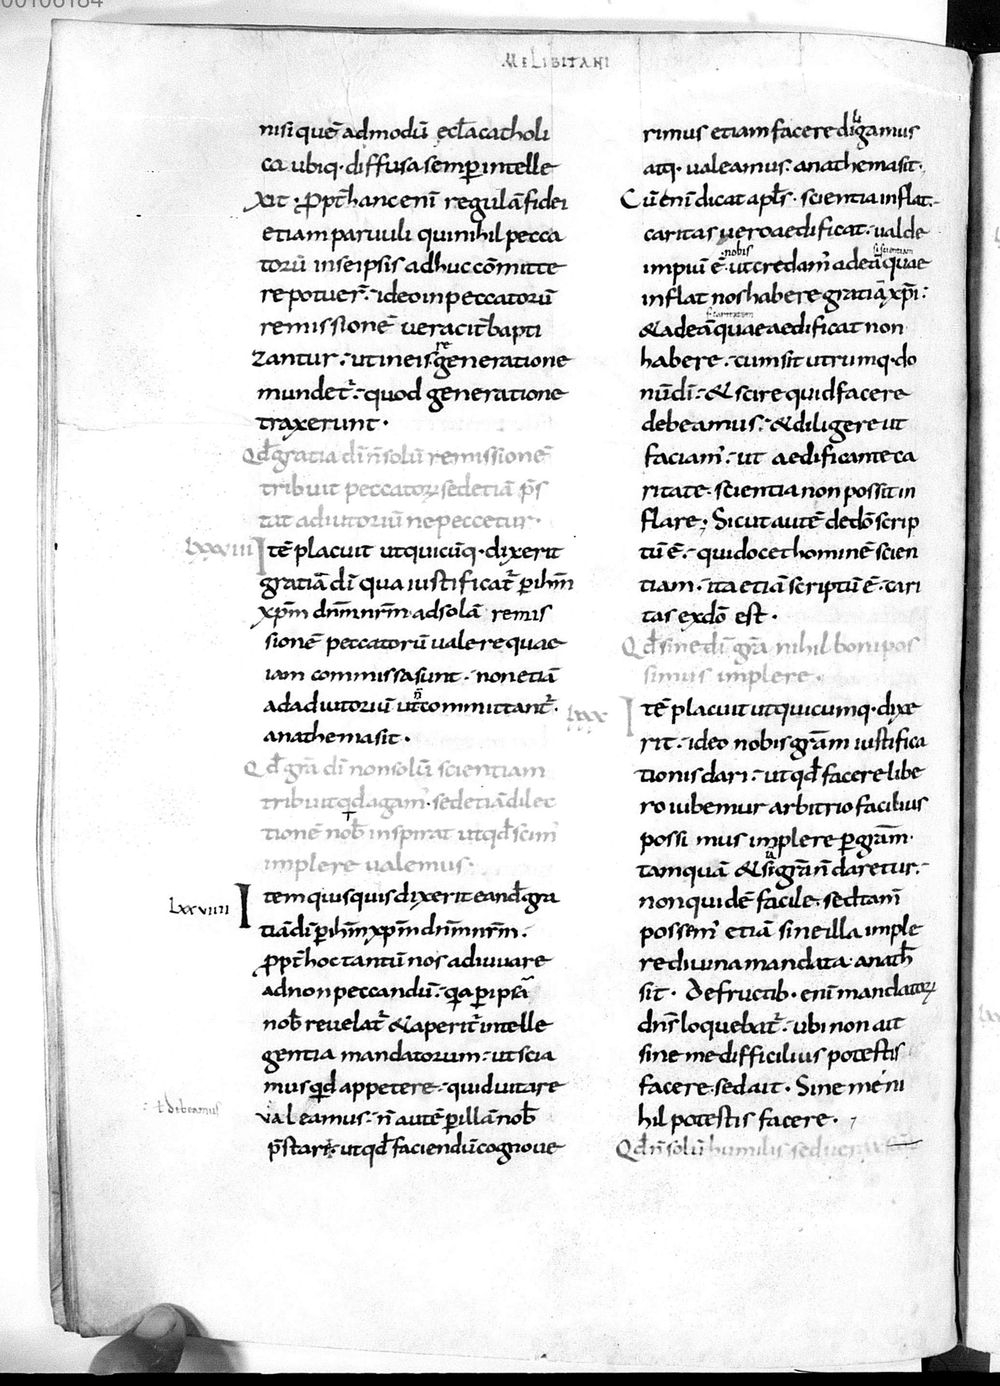 00106184
MELIBITANI
nisi quē admodū eccl̄a catholi
ca ubiq· diffusa semp̱ intelle
xit· Ꝓpt̄ hanc enī regulā fidei
etiam paruuli qui nihil pecca
torū in se ipsis adhuc cōmitte
re potuer̄· ideo in peccatorū
remissionē ueracit̄ bapti
re
zantur· ut in eis generatione
mundet̄· quod generatione
traxerunt·
Qd̄ gratia dī n̄ solū remissionē
tribuit peccatoꝝ sed etiā p̄s
tat adiutoriū ne peccetur·
Lxxviii Itē placuit ut quicūq· dixerit
gratiā dī qua iustificat̄ p̱ ihm̄
xp̄m dn̄m nr̄m ad solā remis
sionē peccatorū ualere quae
iam commissa sunt· non etiā
n̄
ad adiutoriū ut committant̄·
anathema sit·
Qd̄ grā dī non solū scientiam
tribuit qd agam̄· sed etiā dilec
tionē nob̄ inspirat ut qd̄ scim̄
implere ualemus·
Lxxviiii Item quisquis dixerit eand̄ gra
tiā dī p̱ ihm̄ xp̄m dn̄m nr̄m·
ꝓpt̄ hoc tantū nos adiuuare
ad non peccandū· qa p̱ ipsā
nob̄ reuelat̄ & aperit̄ intelle
gentia mandatorum· ut scia
mus qd appetere· quid uitare
ł debeamus
ualeamus· n̄ autē p̱ illā nob̄
p̄stari· ut qd̄ faciendū cognoue
rimus etiam facere diligamus
atq· ualeamus· anathema sit·
Cū enī dicat apl̄s· scientia inflat·
caritas uero aedificat· ualde
nobis
impiū ē· ut credam̄ ad eā quae
inflat nos habere gratiā xp̄i·
& ad eā quae aedificat non
habere· cum sit utrumq· do
nū dī· & scire quid facere
debeamus· & diligere ut
faciam̄· ut aedificante ca
ritate· scientia non possit in
flare· Sicut autē de dō scrip
tū ē· qui docet hominē scien
tiam· ita etiā scriptū ē· cari
tas ex dō est·
Qd̄ sine dī grā nihil boni pos
simus implere·
Lxxx Itē placuit ut quicumq· dixe
rit· ideo nobis grām iustifica
tionis dari· ut qd̄ facere libe
ro iubemur arbitrio facilius
possimus implere p̱ grām·
tamquā & si grā n̄ daretur·
non quidē facile· sed tam̄
possem̄ etiā sine illa imple
re diuina mandata· anath̄
sit· De fructib· enī mandatoꝝ
dn̄s loquebat̄· ubi non ait
sine me difficilius potestis
facere· sed ait· Sine me ni
hil potestis facere·
Qd̄ n̄ solū humilis sed uera